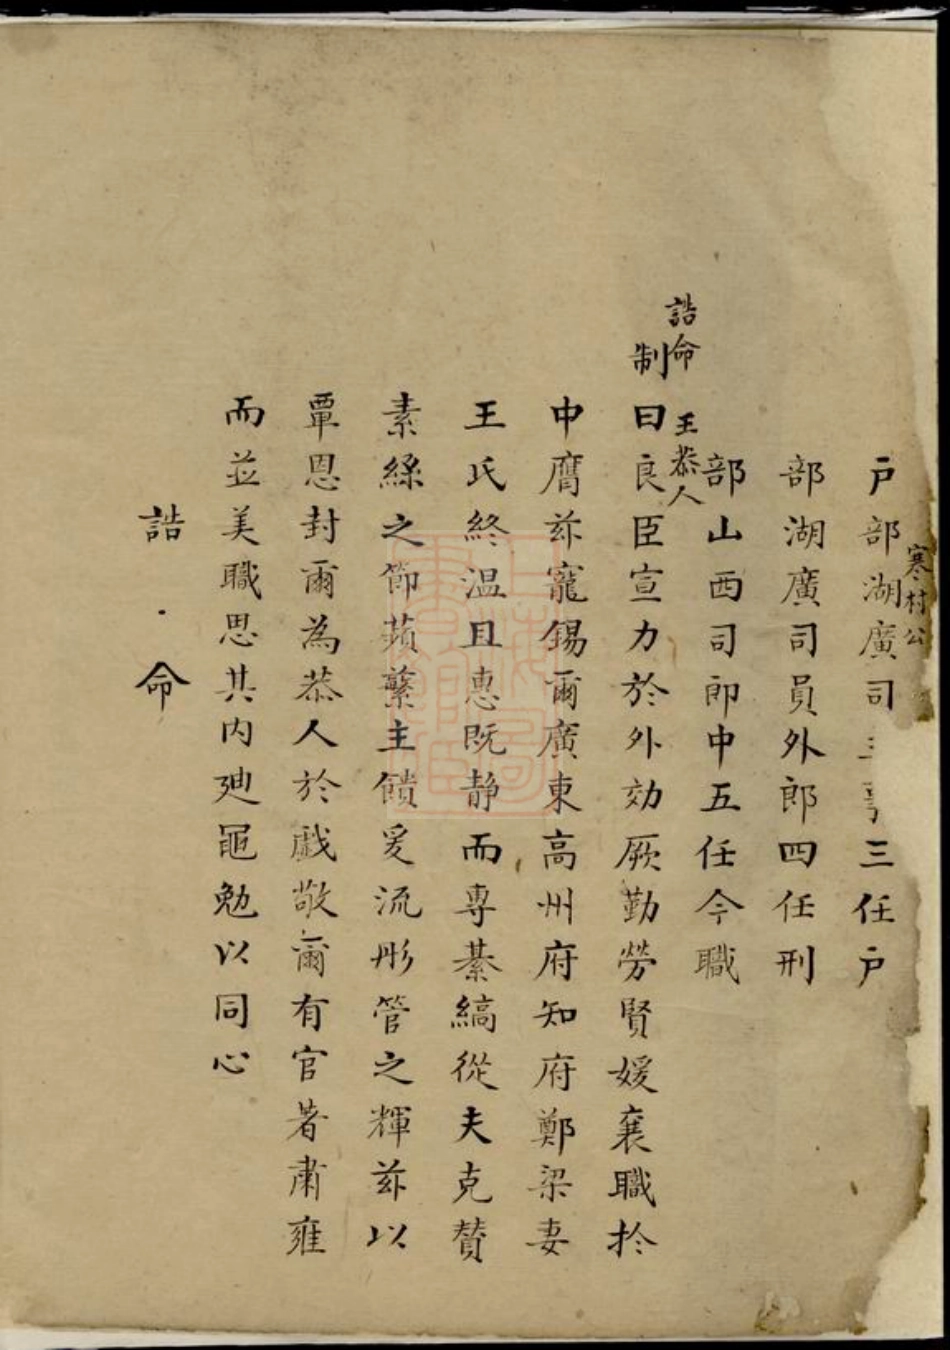 寒村公
戶部湖廣司主事三任戶
部湖廣司員外郎四任刑
部山西司郎中五任今職
誥命王恭人
制曰良臣宣力於外効厥勤勞賢媛襄職於
中膺茲寵錫爾廣東高州府知府鄭梁妻
王氏終温且惠既静而專綦縞從夫克賛
素絲之節蘋蘩主饋爰流彤管之輝茲以
覃恩封爾為恭人於戲敬爾有官著肅雍
而並美職思其内廸黽勉以同心
誥命